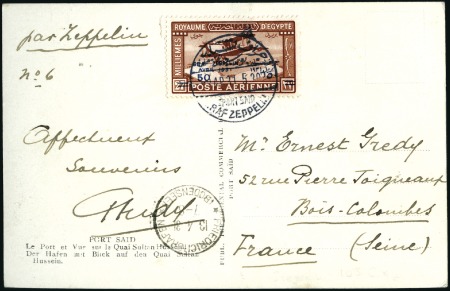 par Zeppelin
No 6
ROYAUME D'EGYPTE
MILLIEMES
50
POSTE AERIENNE
PORT SAID
GRAF ZEPPELIN
Affectueux
Souvenirs
FRIEDRICHSHAFEN
(BODENSEE)
PORT SAID
Le Port et Vue sur le Quai Sultan Hussein
Der Hafen mit Blick auf den Quai Sultan
Hussein.
PORT SAID
Mr Ernest Gredy
52 rue Pierre Joigneaux
Bois-Colombes
France (Seine)